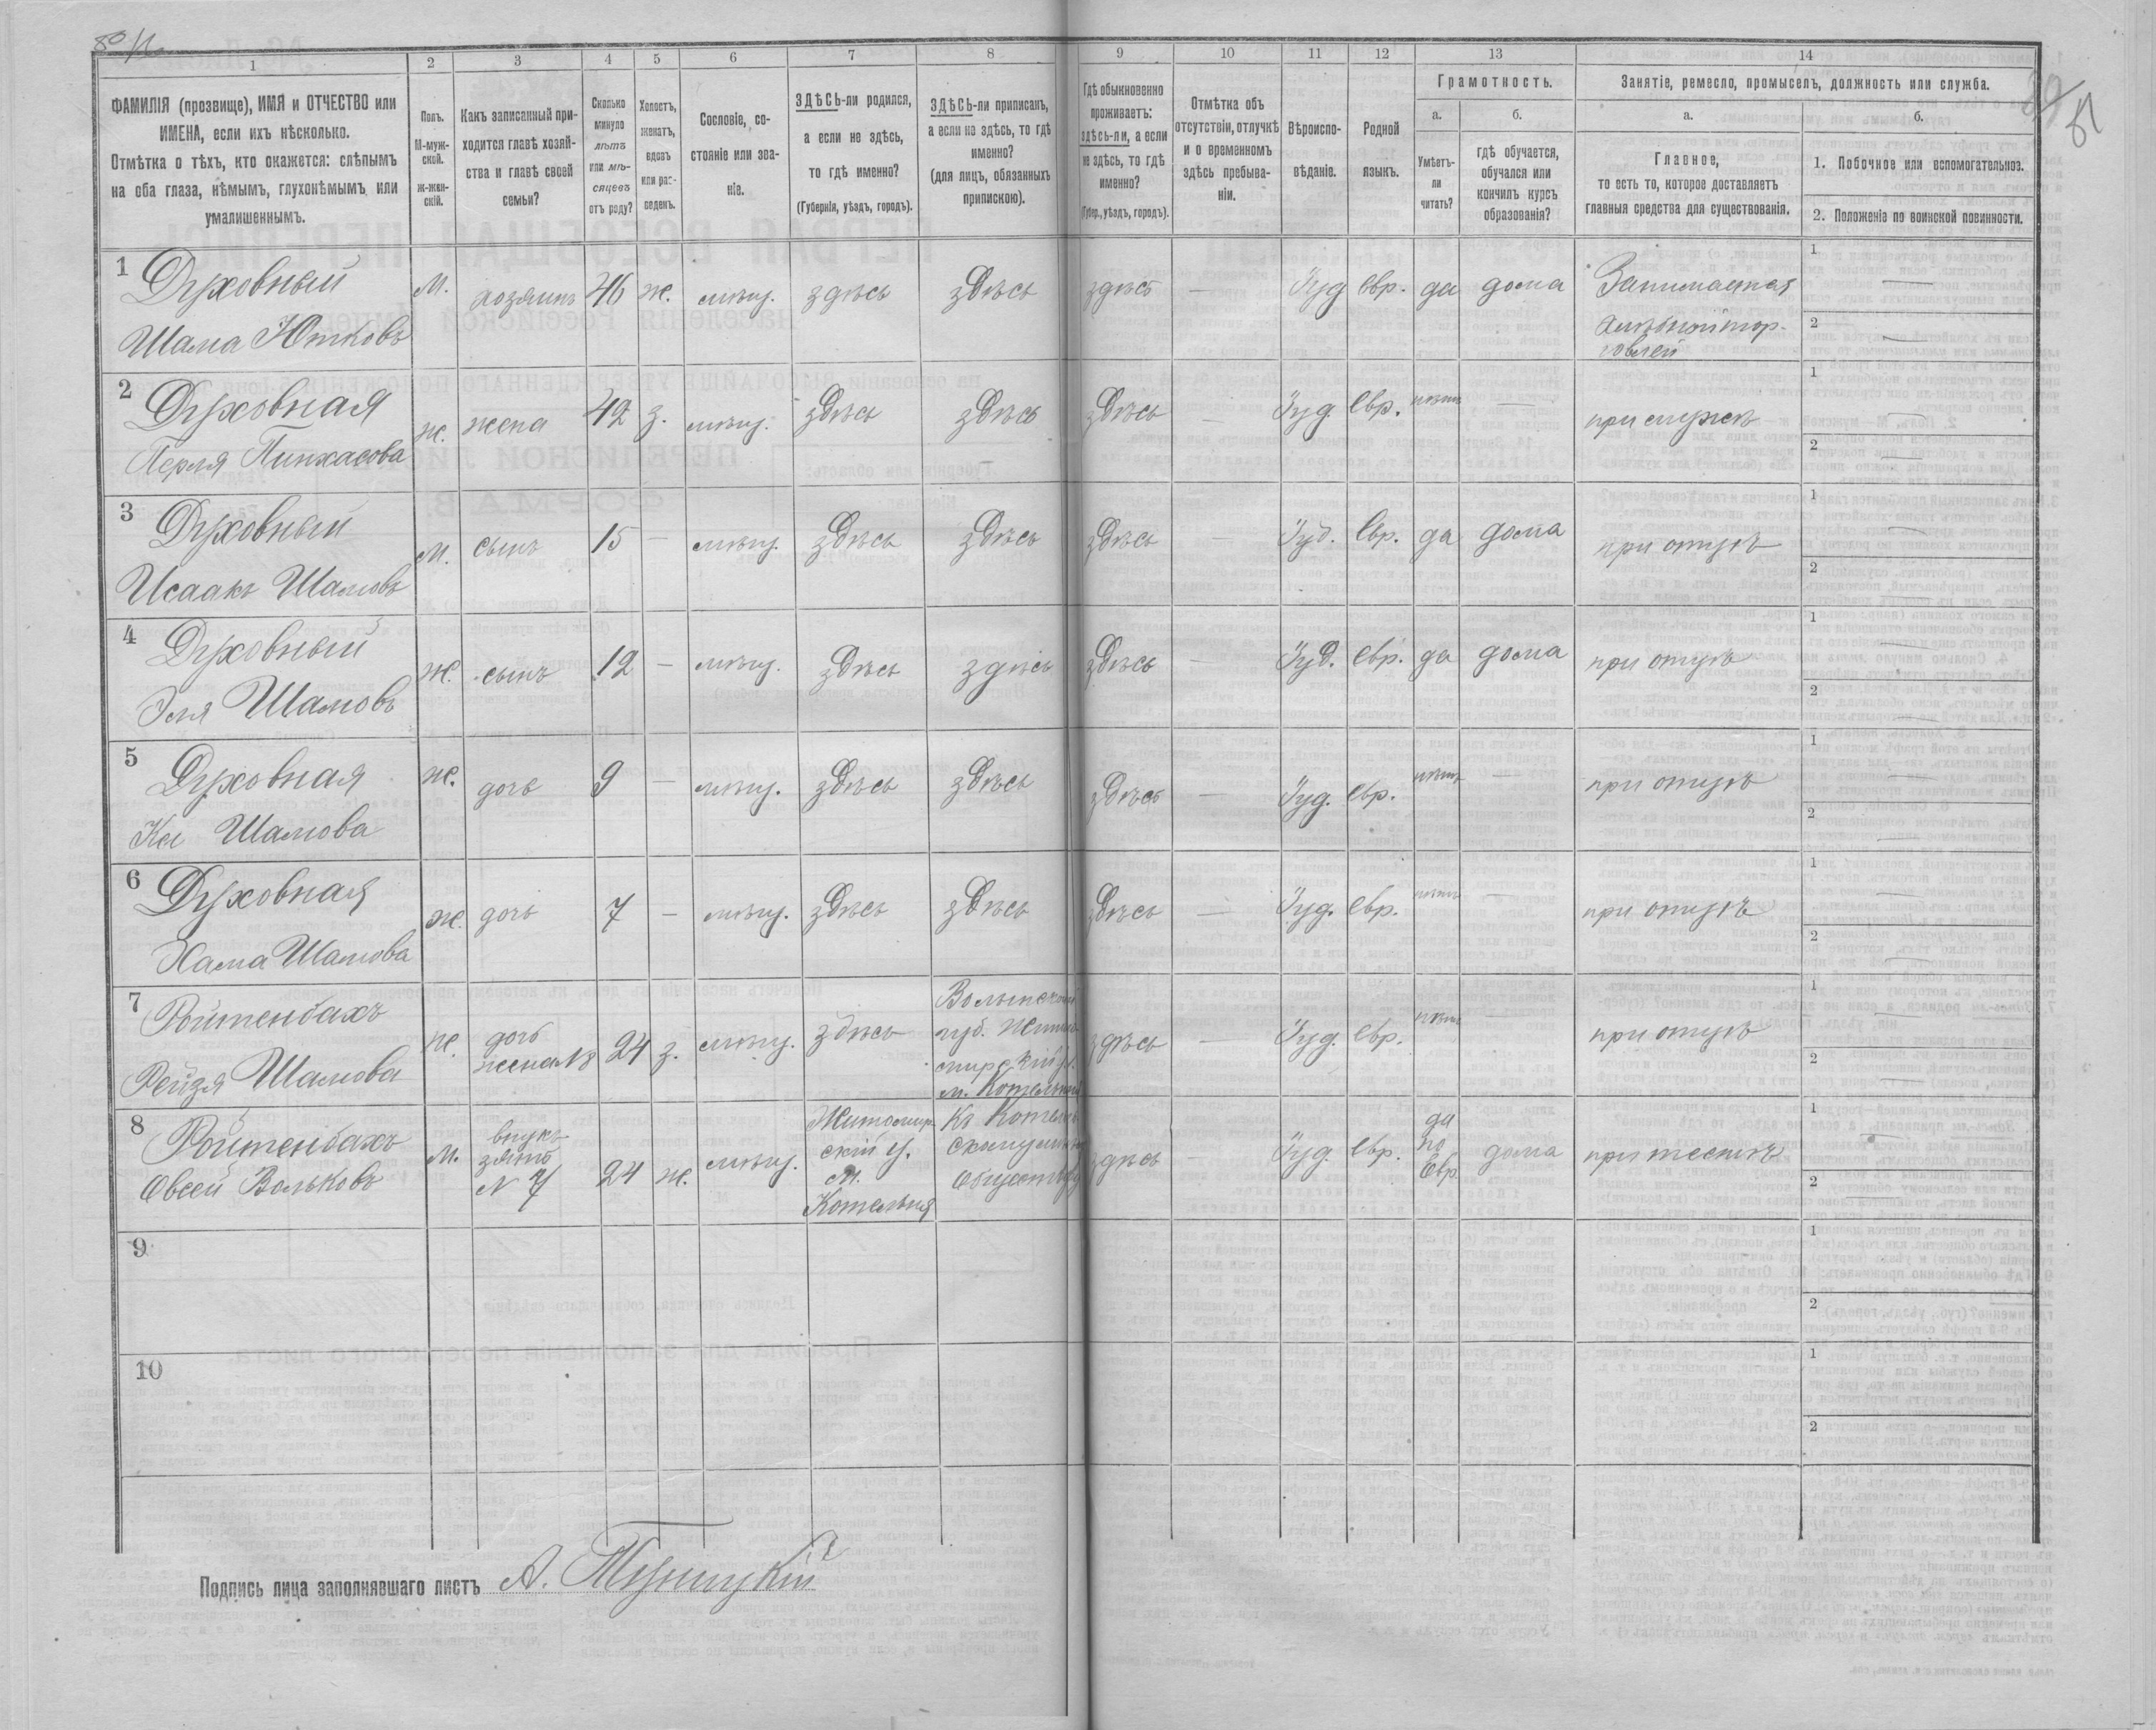 1 2 3 4 5 6 7 8 9 10 11 12 13 14
ФАМИЛІЯ (прозвище), ИМЯ и ОТЧЕСТВО или
ИМЕНА, если ихъ нѣсколько.
Отмѣтка о тѣхъ, кто окажется: слѣпымъ
на оба глаза, нѣмымъ, глухонѣмымъ или
умалишеннымъ.
Полъ.
М-муж-
ской.
ж-жен-
скій.
Какъ записанный при-
ходится главѣ хозяй-
ства и главѣ своей
семьи?
Сколько
минуло
лѣтъ
или мѣ-
сяцевъ
отъ роду?
Холостъ,
женатъ,
вдовъ
или раз-
веденъ.
Сословіе, со-
стояніе или зва-
ніе.
ЗДѢСЬ-ли родился,
а если не здѣсь,
то гдѣ именно?
(Губернія, уѣздъ, городъ).
ЗДѢСЬ-ли приписанъ,
а если не здѣсь, то гдѣ
именно?
(для лицъ, обязанныхъ
припискою).
Гдѣ обыкновенно
проживаетъ:
здѣсь-ли, а если
не здѣсь, то гдѣ
именно?
(Губер., уѣздъ, городъ).
Отмѣтка объ
отсутствіи, отлучкѣ
и о временномъ
здѣсь пребыва-
ніи.
Вѣроиспо-
вѣданіе.
Родной
языкъ.
Грамотность.
а.
Умѣетъ-
ли
читать?
б.
гдѣ обучается,
обучался или
кончилъ курсъ
образованія?
Занятіе, ремесло, промыселъ, должность или служба.
а.
Главное,
то есть то, которое доставляетъ
главныя средства для существованія.
б.
1. Побочное или вспомогательное.
2. Положеніе по воинской повинности.
1 Духовный
Шама Ютковъ
М. хозяинъ 46 ж. мѣщ. здѣсь здѣсь здѣсь — Іуд евр. да дома
Занимается
хлѣбной тор-
говлей
1 —
2 —
2 Духовная
Перля Пинхасова
ж. жена 42 з. мѣщ. здѣсь здѣсь здѣсь — Іуд. евр. нѣтъ — при мужѣ
1 —
2 —
3 Духовный
Исаакъ Шамовъ
М. сынъ 15 — мѣщ. здѣсь здѣсь здѣсь — Іуд. евр. да дома при отцѣ
1 —
2 —
4 Духовный
Эля Шамовъ
Ж. сынъ 12 — мѣщ. здѣсь здѣсь здѣсь — Іуд. евр. да дома при отцѣ
1 —
2 —
5 Духовная
Шамова
ж. дочь 9 — мѣщ. здѣсь здѣсь здѣсь — Іуд. евр. нѣтъ — при отцѣ
1 —
2 —
6 Духовная
Хама Шамова
ж. дочь 7 — мѣщ. здѣсь здѣсь здѣсь — Іуд. евр. нѣтъ — при отцѣ
1 —
2 —
7 Ройтенбахъ
Рейзя Шамова
ж. дочь
жена 8
24 з. мѣщ. здѣсь
Волынской
губ. Жито-
мирскій у.
м. Котельня
здѣсь — Іуд. евр. нѣтъ — при отцѣ
1 —
2 —
8 Ройтенбахъ
Овсей Вольковъ
М.
зять
№ 7
24 ж. мѣщ.
Житомир-
скій у.
М.
Котельня
Къ
Обществу
здѣсь — Іуд. евр.
да
по
Евр.
дома при тестѣ
1 —
2 —
9
1
2
10
1
2
Подпись лица заполнявшаго листъ А.